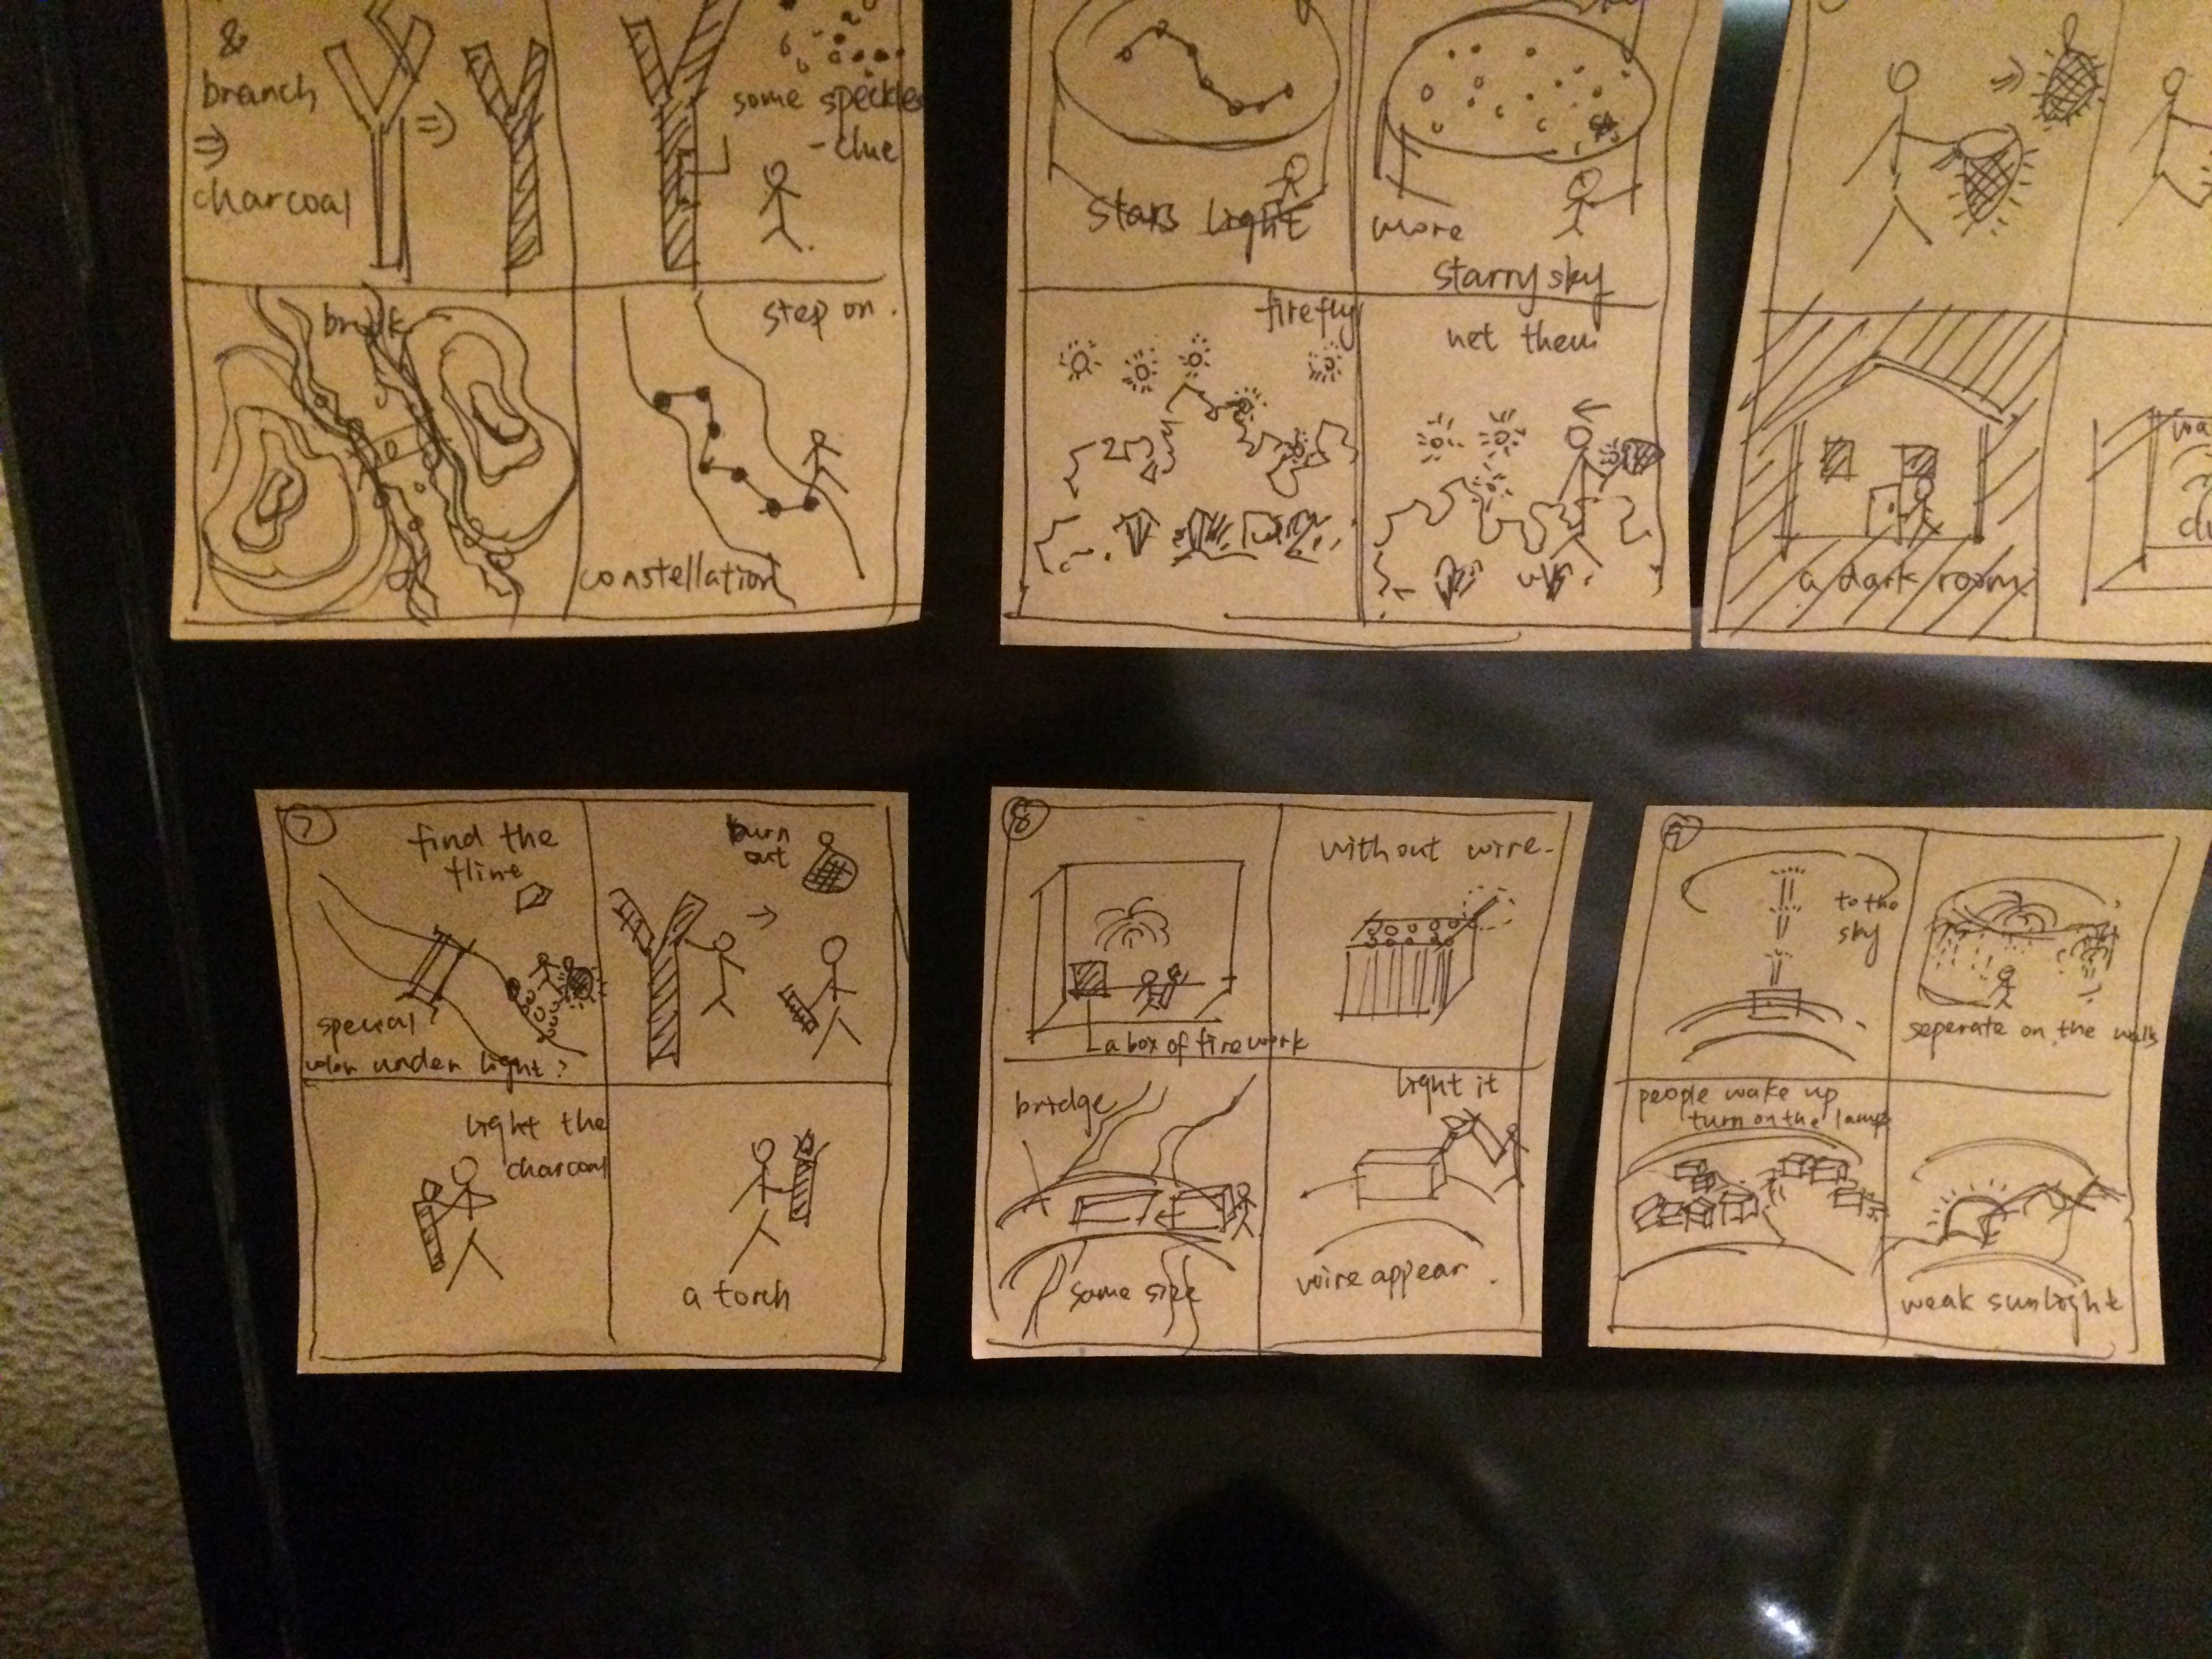 &
branch
⇒
charcoal
⇒
some speckles
-clue
brook
step on.
constellation
stars light
more
starry sky
firefly
net them
⇒
a dark room
7
find the
fline
special
color under light?
burn
out
light the
charcoal
a torch
8
a box of firework
without wire.
bridge
same size
light it
wire appear.
9
to the
sky
seperate on the walls
people wake up
turn on the lamp
weak sunlight